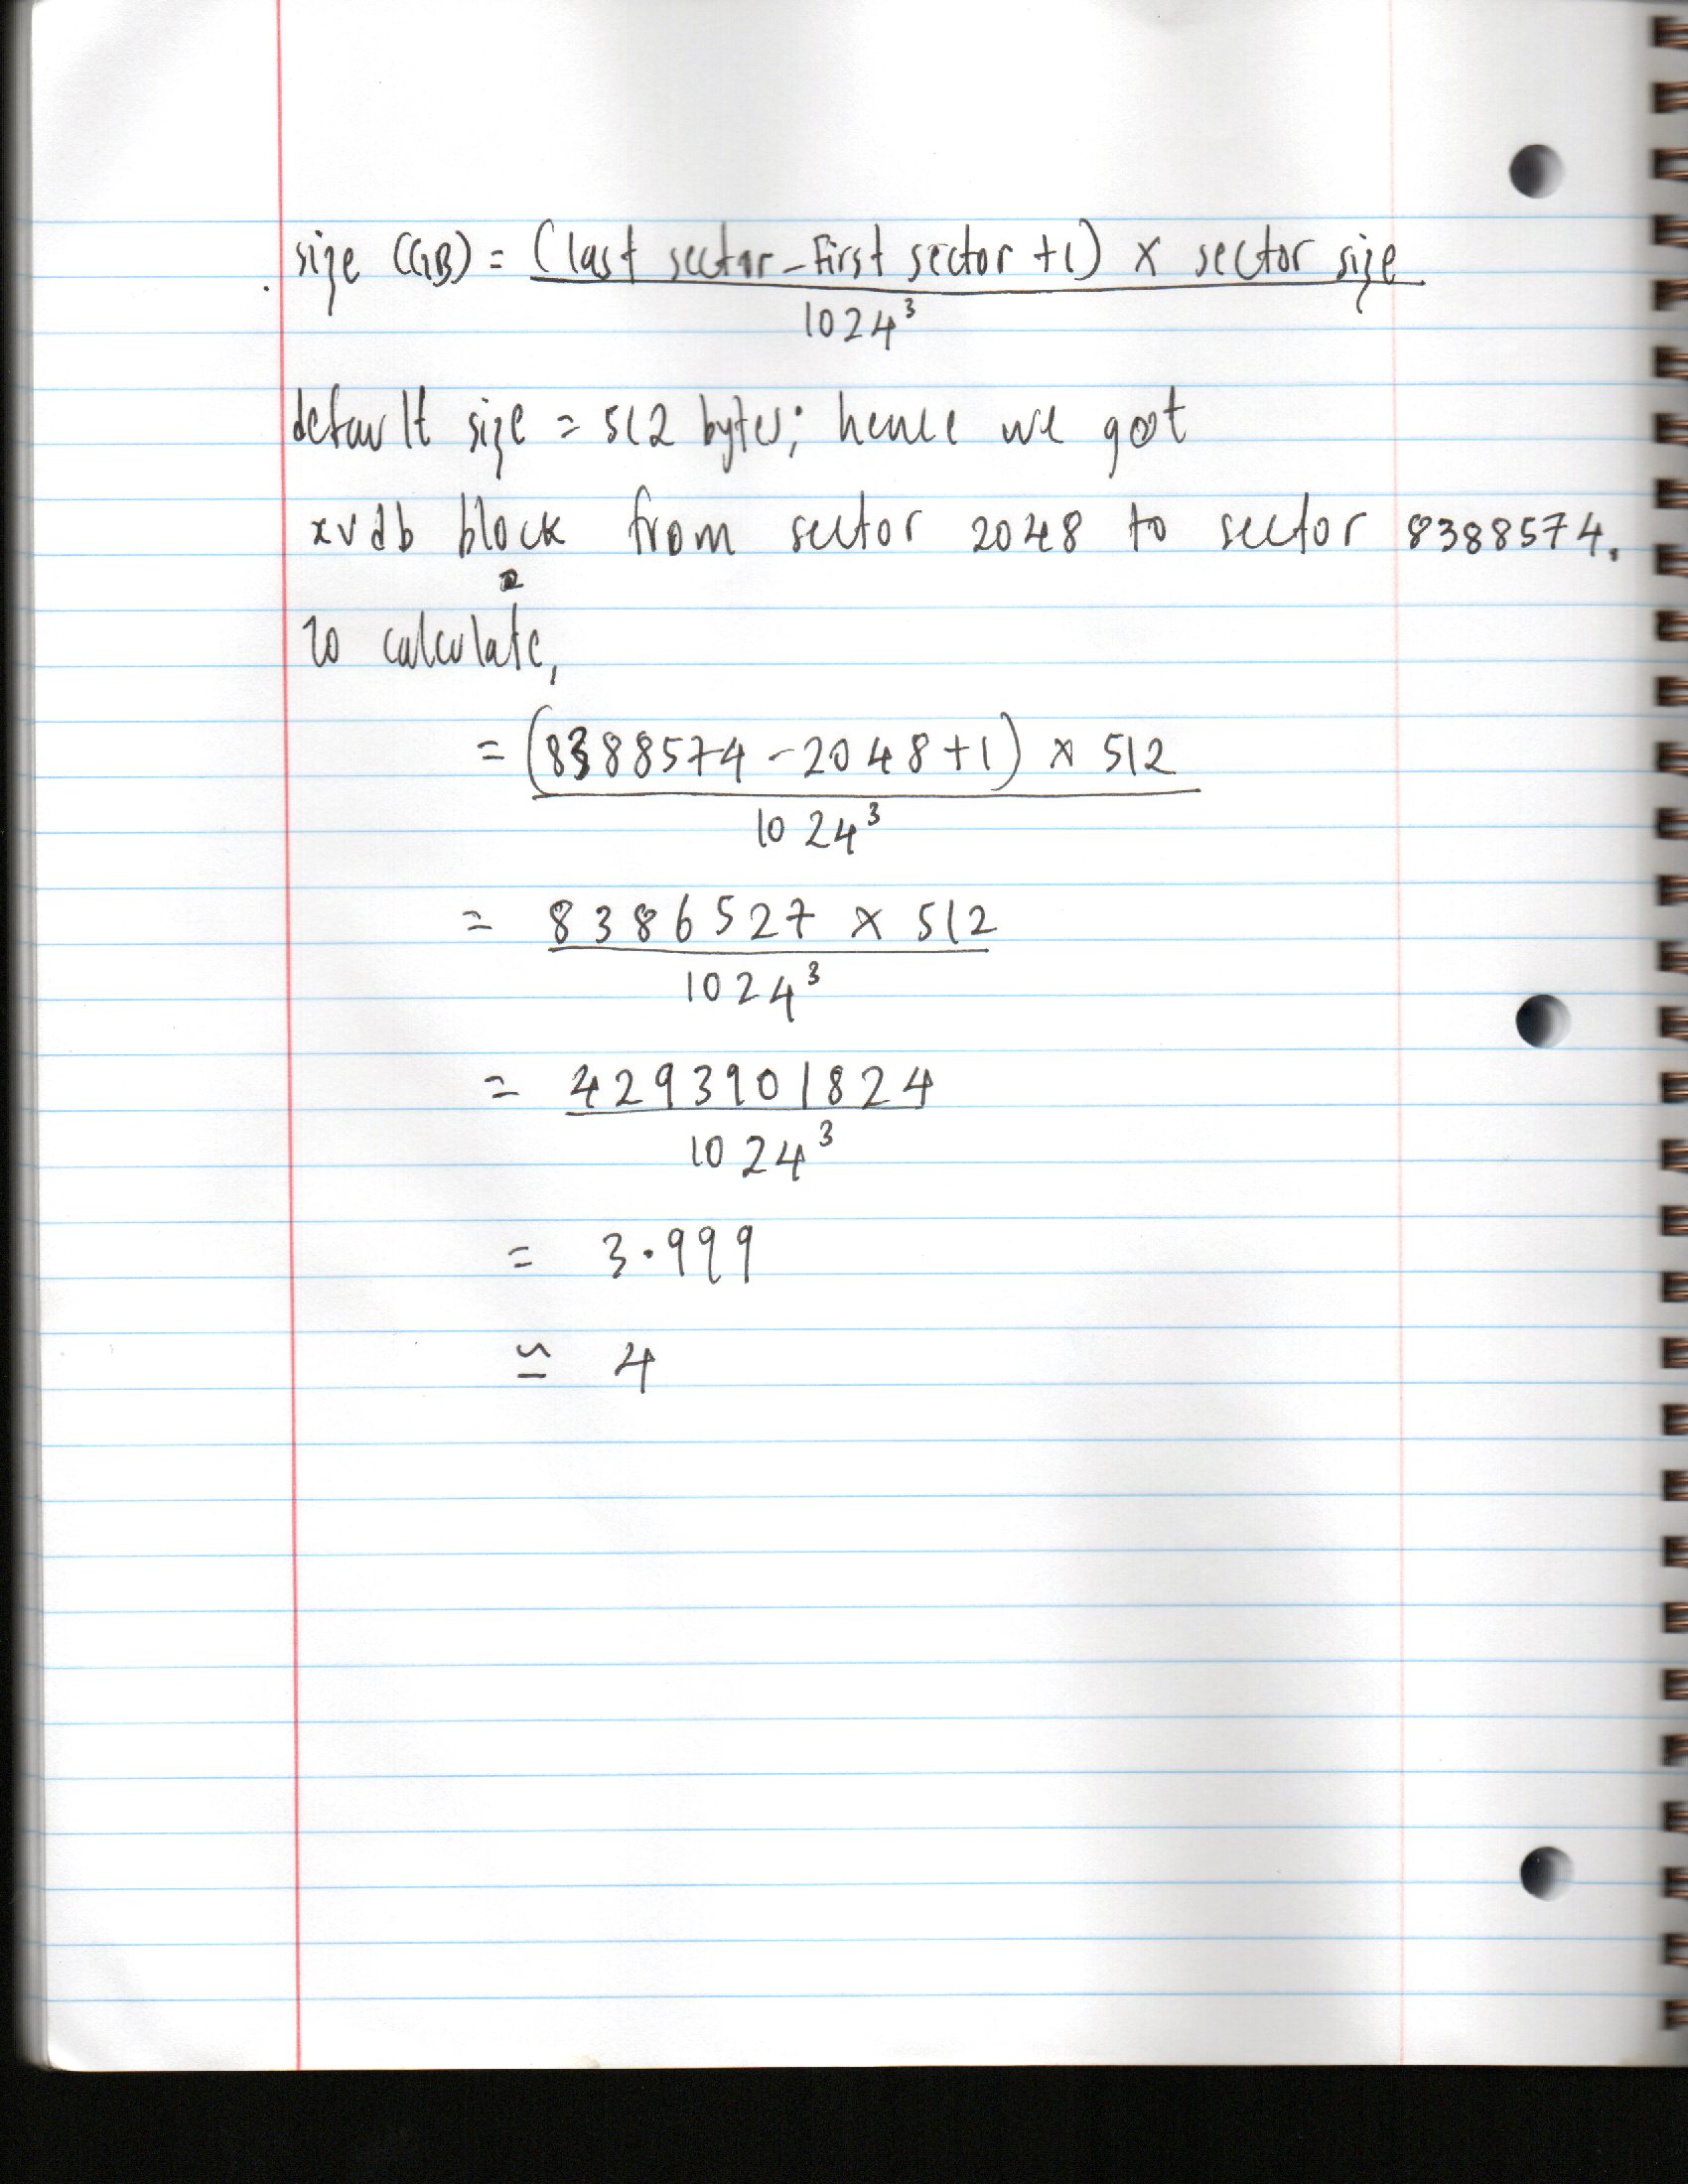 size (GB) = (last sector - first sector + 1) x sector size
1024³
default size = 512 bytes; hence we got
xvdb block from sector 2048 to sector 8388574.
to calculate,
= (8388574 - 2048 + 1) x 512
1024³
= 8386527 x 512
1024³
= 4293901824
1024³
= 3.999
≌ 4